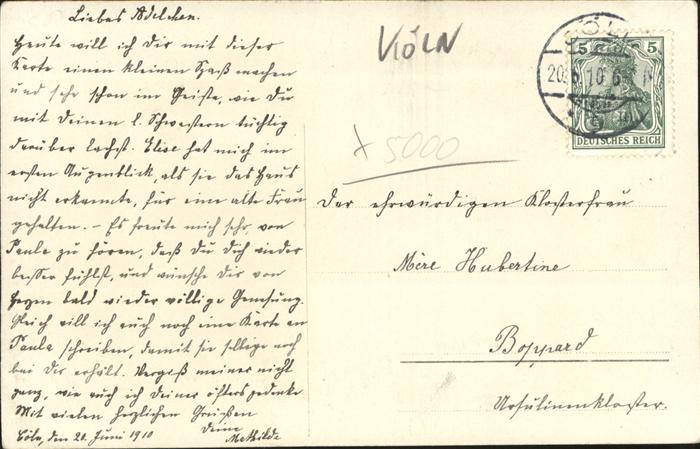 Liebes Adelchen.
Heute will ich Dir mit dieser
Karte einen kleinen Spaß machen
und sehe schon im Geiste, wie Du
mit Deinen l. Schwestern tüchtig
darüber lachst. Elise hat mich im
ersten Augenblick, als sie das Haus
nicht erkannte, für eine alte Frau
gehalten. – Es freute mich sehr, von
Paula zu hören, daß Du Dich wieder
besser fühlst, und wünsche Dir von
Herzen bald wieder völlige Genesung.
Gleich will ich auch noch eine Karte an
Paula schreiben, damit sie selbige noch
bei Dir erhält. Vergeß meiner nicht
ganz, wie auch ich Deiner öfters gedenke
Mit vielen herzlichen Grüßen
Deine
Cöln, den 20. Juni 1910 Mathilde
KÖLN
+ 5000
CÖLN
20.6.10.6-7N
5 5
DEUTSCHES REICH
Der ehrwürdigen Klosterfrau
Mère Hubertine
Boppard
Ursulinenkloster.